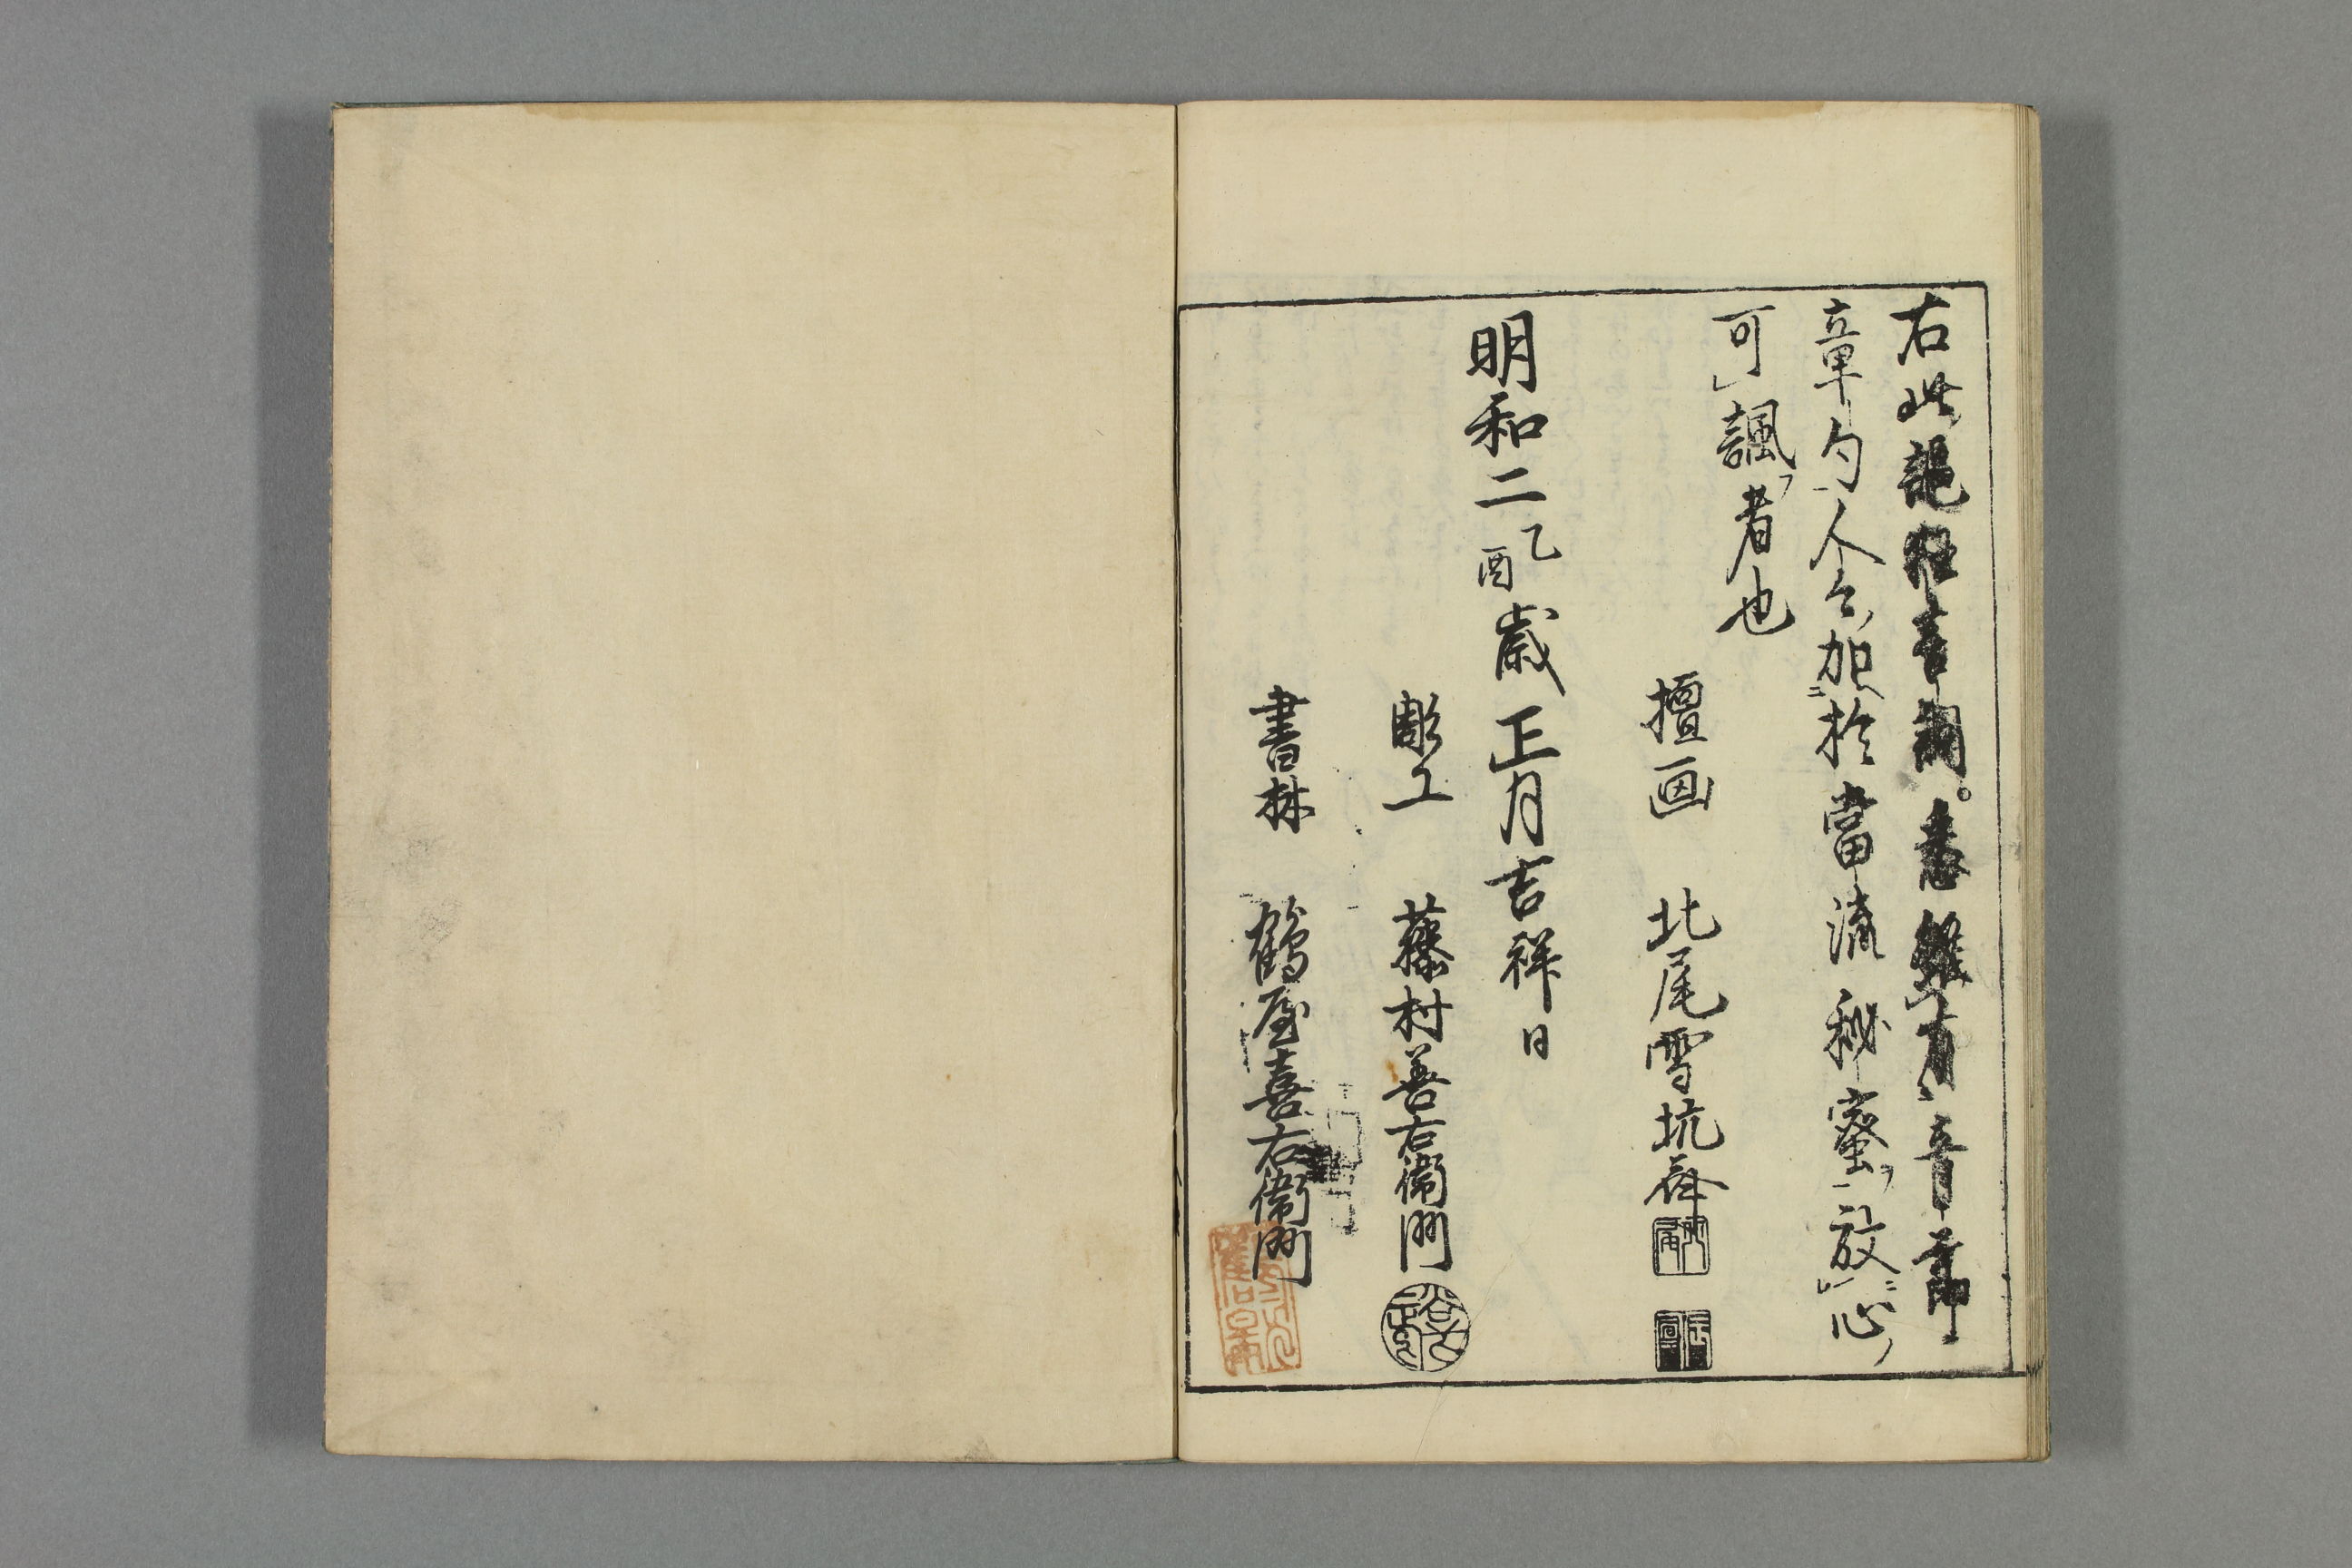 右此謡狂言。悉雖有音節
章句人々加於當流秘蜜放心
可諷者也
擅画 北尾雪坑斎
明和二乙酉歳正月吉祥日
彫工 藤村善右衛門
書林 鶴屋喜右衛門